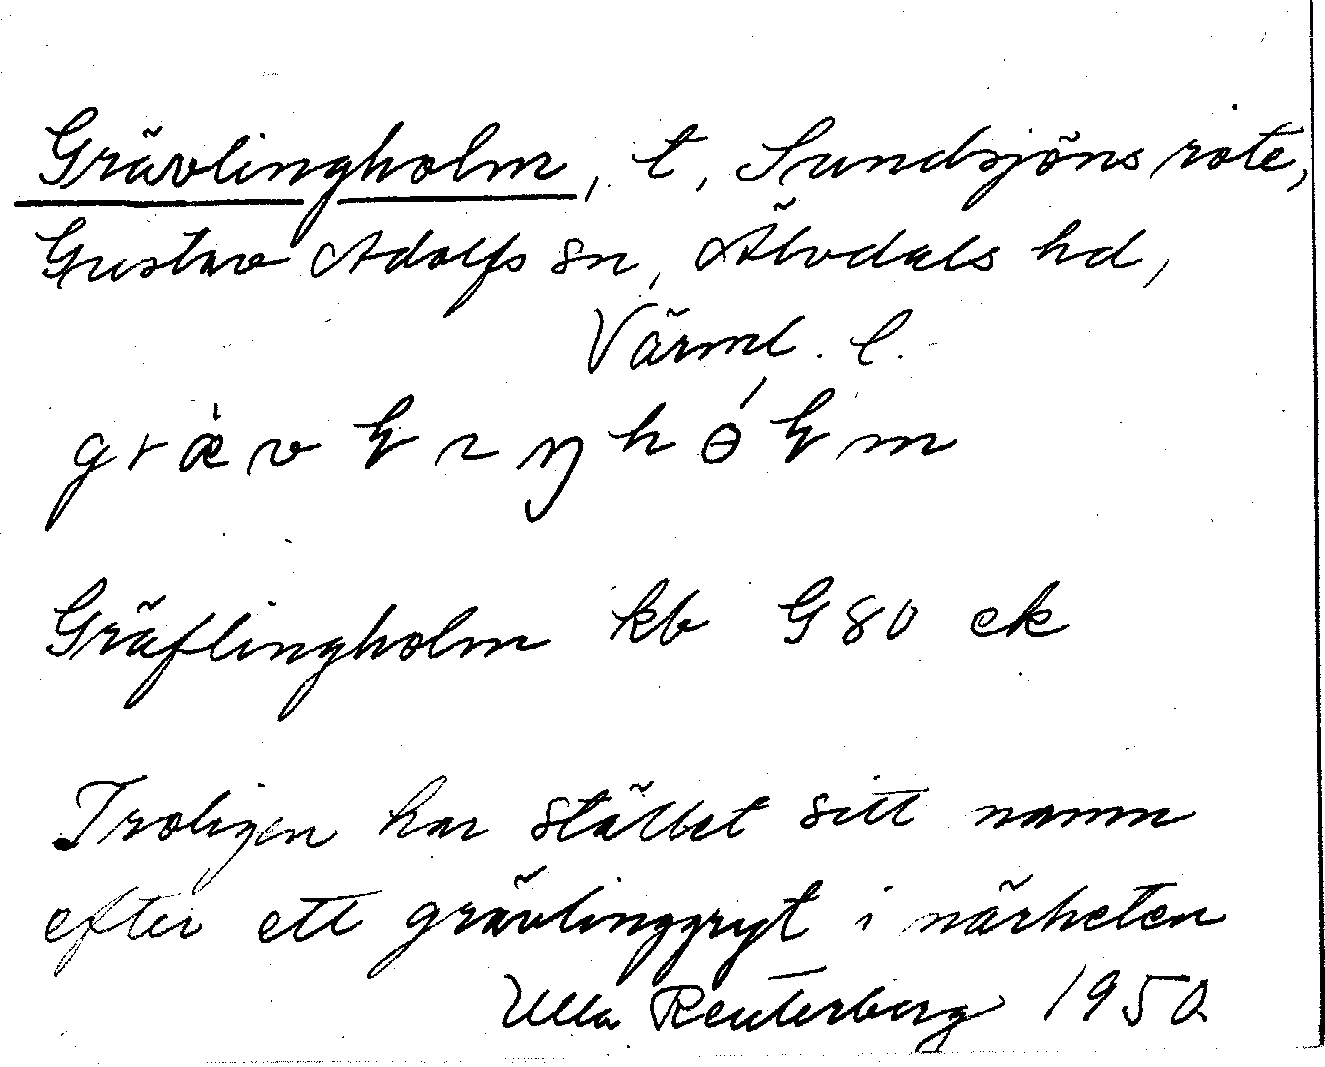 Grävlingholm, t, Sundsjöns rote,
Gustav Adolfs sn, Älvdals hd,
Värml. l.
Gräflingholm kb G 80 ek
Troligen har stället sitt namn
efter ett grävlinggryt i närheten
Ulla Reuterberg 1950